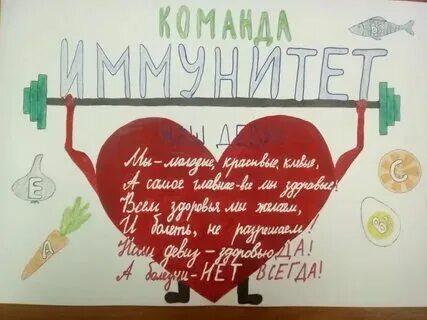 КОМАНДА
ИММУНИТЕТ
НАШ ДЕВИЗ
Мы-молодые, красивые, клевые,
А самое главное-все мы здоровые!
Всем здоровья мы желаем,
И болеть, не разрешаем!
Наш девиз - здоровью ДА!
А болезни-НЕТ ВСЕГДА!
E
C
A